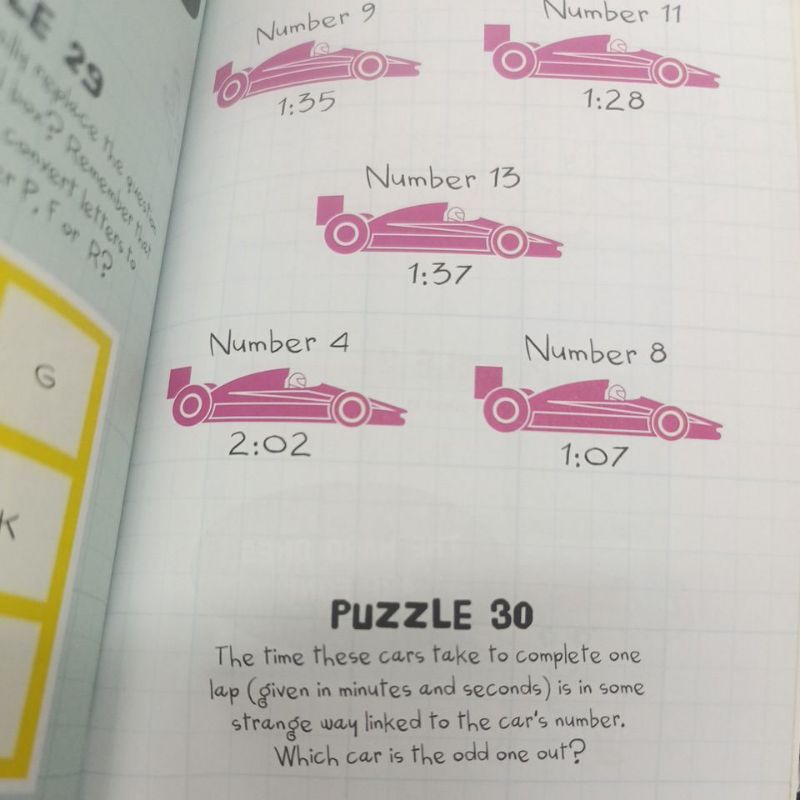 LE 29
replace the question
box? Remember that
convert letters to
or P, F or R?
G
K
Number 9
1:35
Number 11
1:28
Number 13
1:37
Number 4
2:02
Number 8
1:07
PUZZLE 30
The time these cars take to complete one
lap (given in minutes and seconds) is in some
strange way linked to the car's number.
Which car is the odd one out?